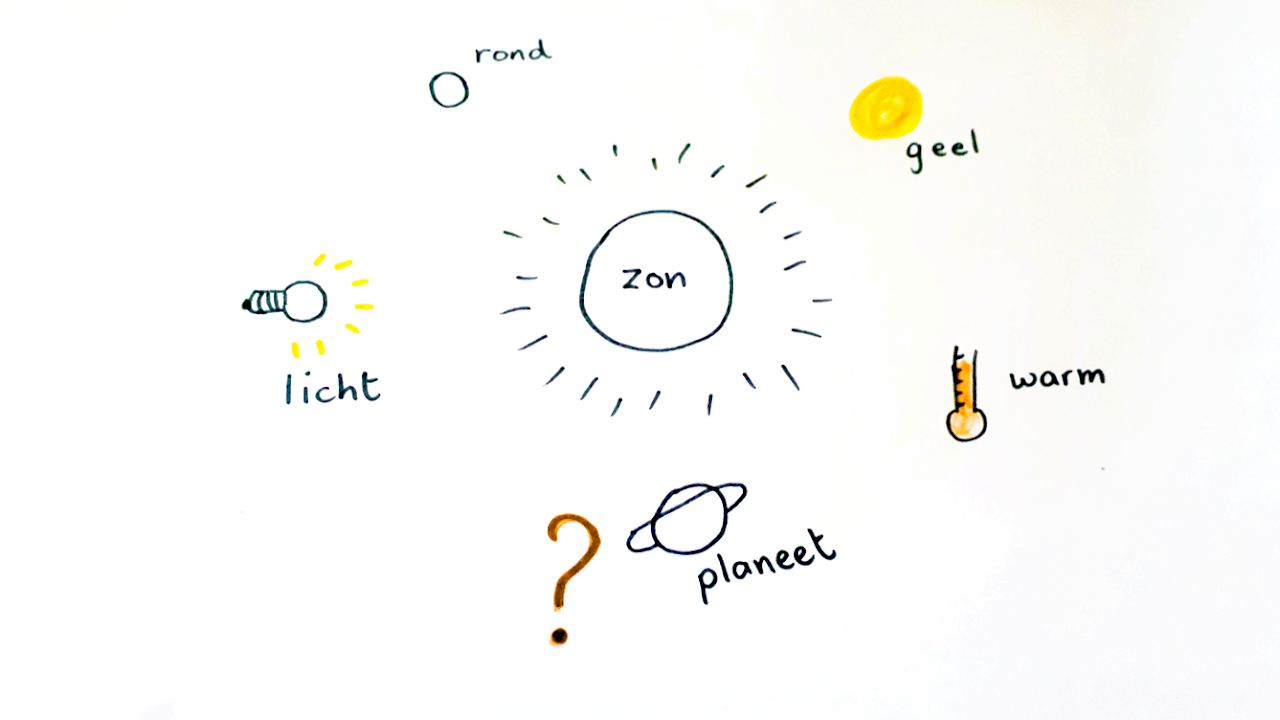 rond
geel
zon
licht
warm
?
planeet